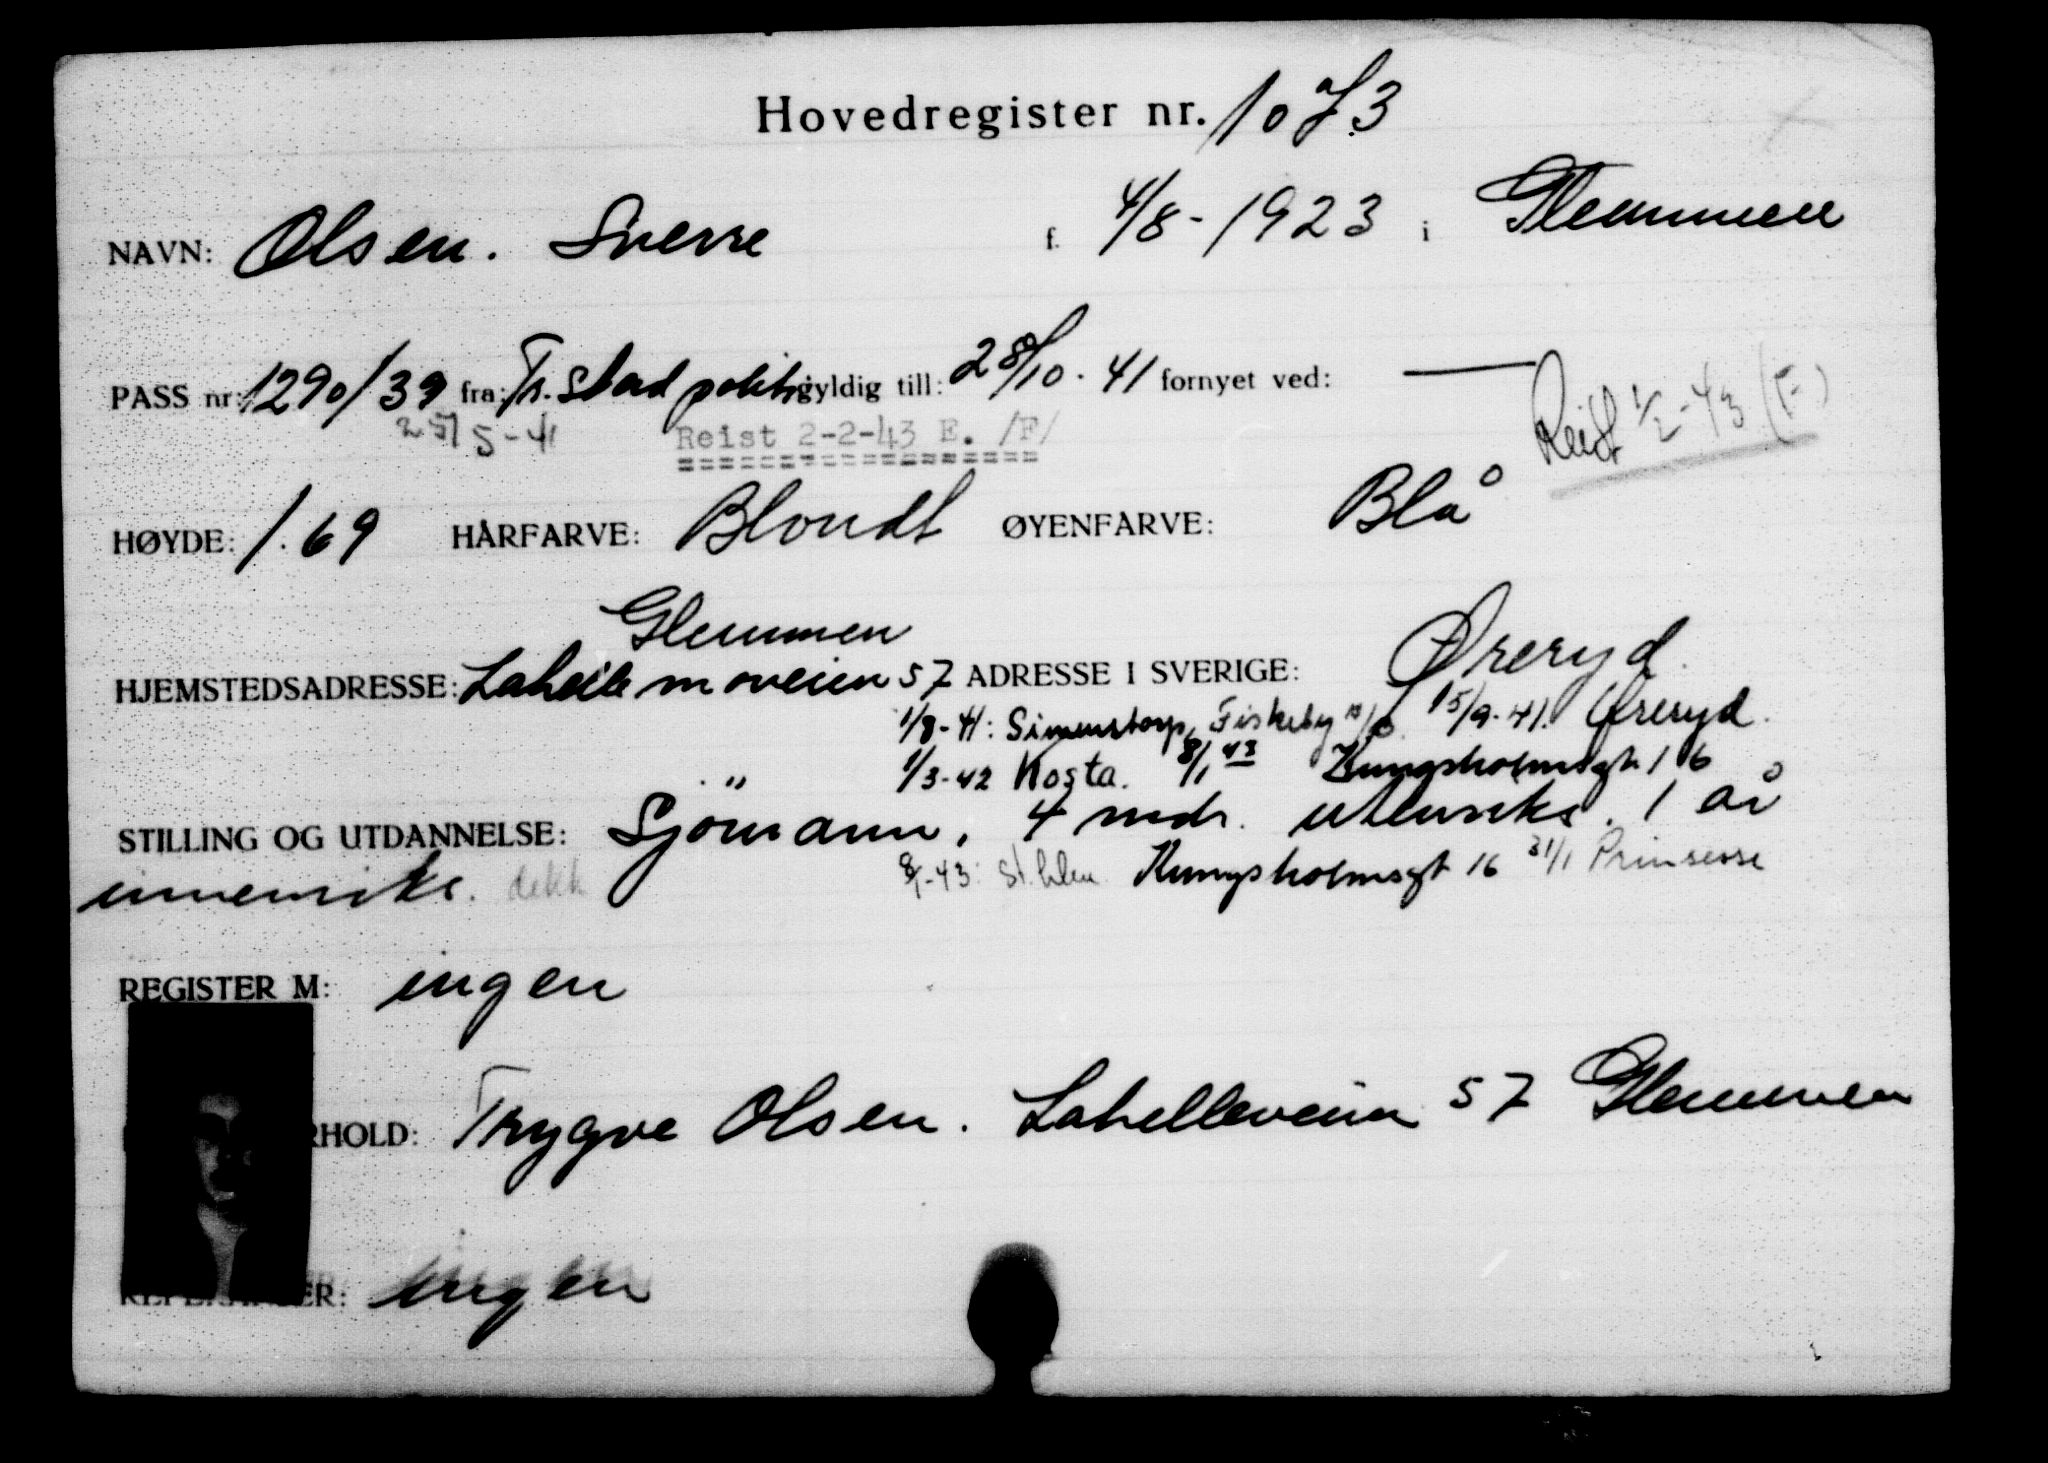 Hovedregister nr. 1073
NAVN: Olsen. Sverre f. 4/8-1923 i Glemmen
PASS nr: 1290/39 fra: Fr.stad politi gyldig till: 28/10-41 fornyet ved: —
25/5-41 Reist 2-2-43 E. /F/ Reist 1/2-43 (F)
HØYDE: 1.69 HÅRFARVE: Blondt ØYENFARVE: Blå
Glemmen
HJEMSTEDSADRESSE: Lahelle moveien 57 ADRESSE I SVERIGE: Øreryd.
1/8-41: Simonstorp, Fiskeby 15/9-41. Øreryd.
1/3-42 Kosta. 8/1 43 Kungsholmsgt. 16
STILLING OG UTDANNELSE: Sjömann, 4 mdr. utenriks. 1 år
innenriks. dekk 8/1-43: St.hlm Kungsholmsgt 16 31/1 Prinsesse
REGISTER M: ingen
RHOLD: Trygve Olsen. Lahelleveien 57 Glemmen
REFERANSER: ingen